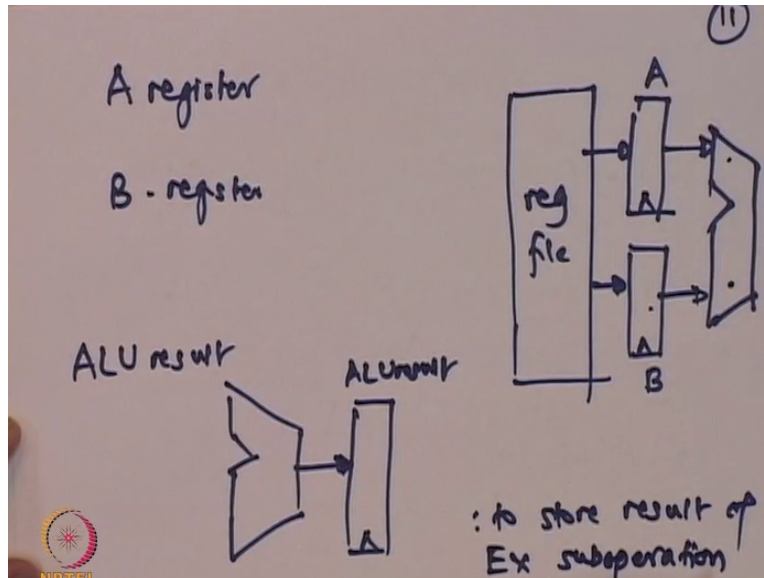 11
A register
B - register
A
reg
file
B
ALU result
ALU result
: to store result of
Ex suboperation
NPTEL